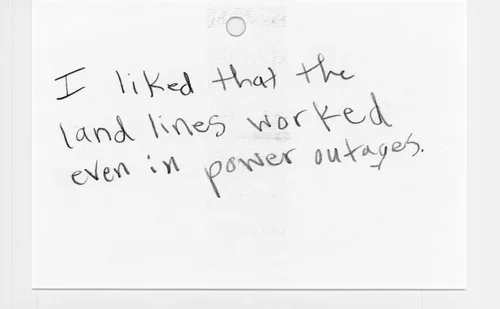 I liked that the
land lines worked
even in power outages.